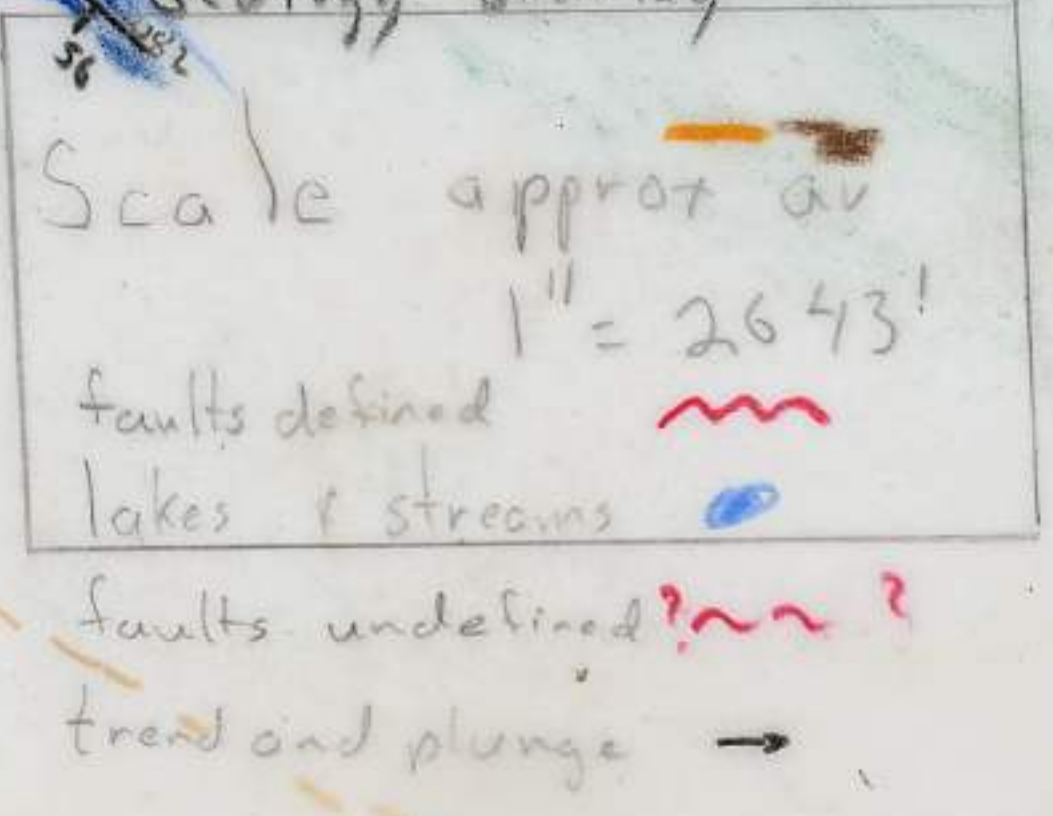 Geology
56
Scale approx av
1" = 2643'
faults defined
lakes & streams
faults undefined ? ?
trend and plunge